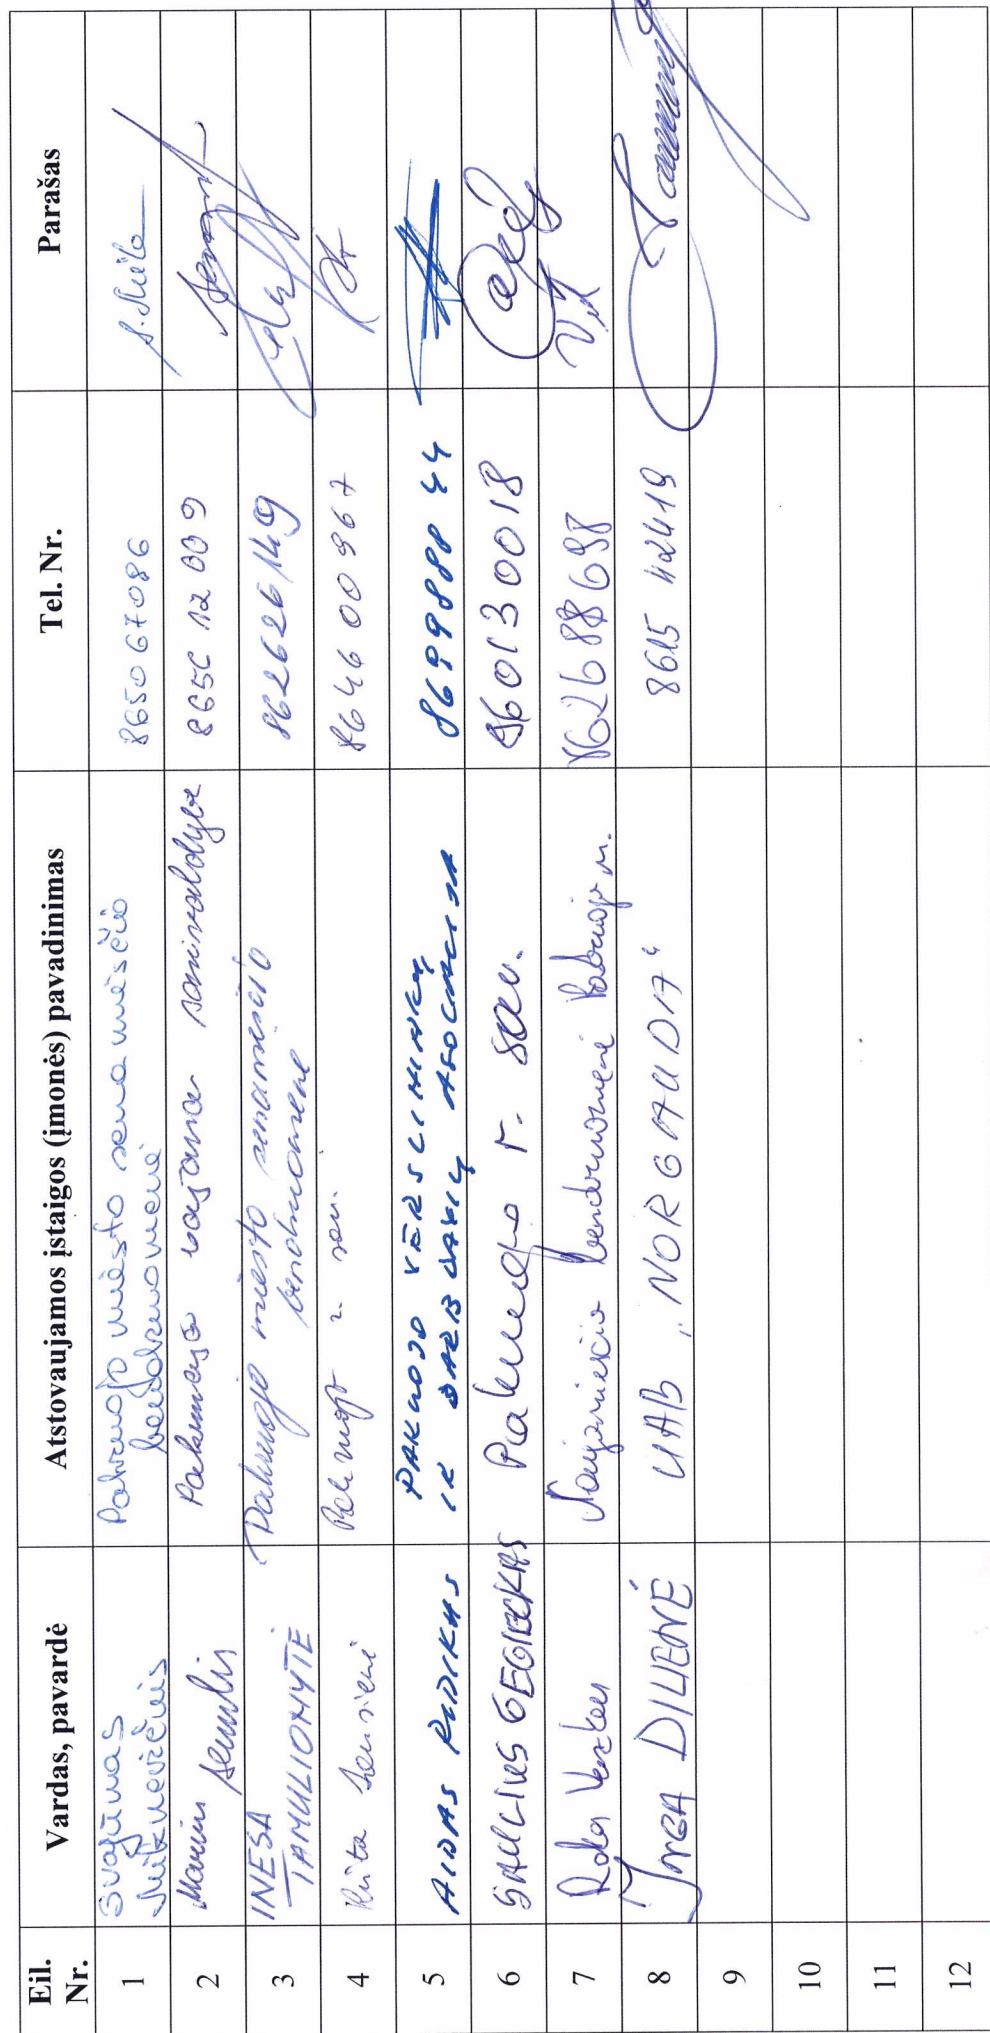 Eil. Nr. Vardas, pavardė Atstovaujamos įstaigos (įmonės) pavadinimas Tel. Nr. Parašas
1 Svajūnas Miknevičius Pakruojo miesto senamiesčio bendruomenė 865067086
2 Marius Pakruojo rajono savivaldybė 865612009
3 INESA TAMULIONYTĖ Pakruojo miesto senamiesčio bendruomenė 862626149
4 Rūta Pakruojo r. sav. 864600967
5 AIDAS RUDIKAS PAKRUOJO VERSLININKŲ IR DARBDAVIŲ ASOCIACIJA 869988844
6 SAULIUS GEGIECKAS Pakruojo r. sav. 860130018
7 Naujamiesčio bendruomenė Pakruojo m. 862688698
8 JURGA DILIENĖ UAB „NORGAUDA“ 8615 42419
9
10
11
12